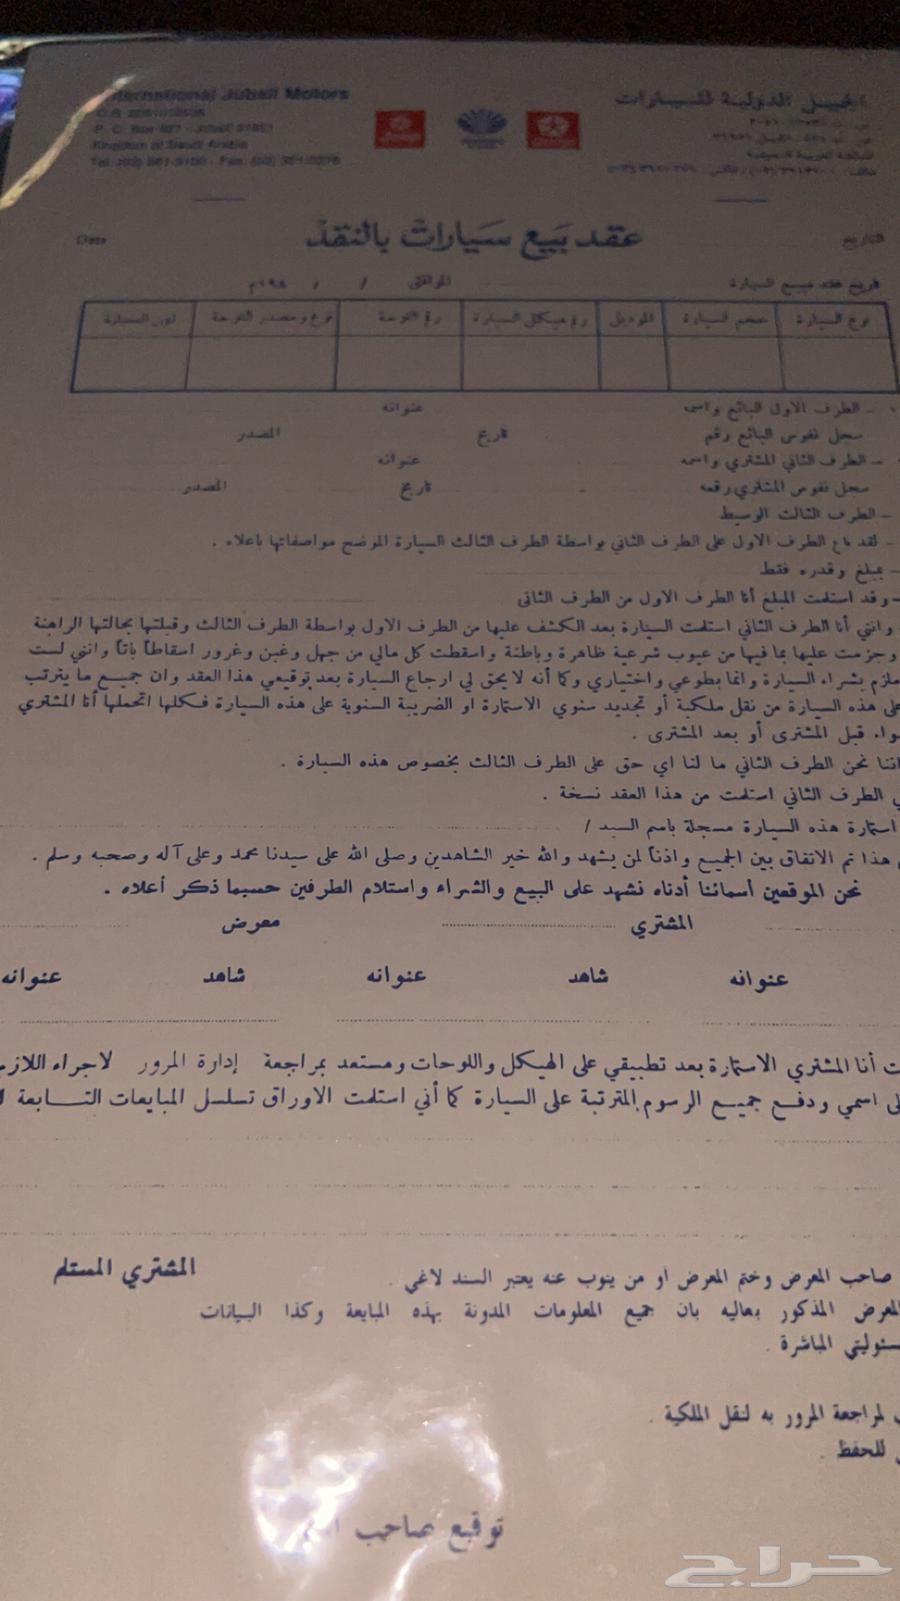 International Jubail Motors
Kingdom of Saudi Arabia
الجبيل الدولية للسيارات
المملكة العربية السعودية
عقد بيع سيارات بالنقد
Date
التاريخ
تاريخ عقد مبيع السيارة الموافق / / ١٩٨م
نوع السيارة حجم السيارة الموديل رقم هيكل السيارة رقم اللوحة نوع ومصدر اللوحة لون السيارة
- الطرف الاول البائع واسمه عنوانه
سجل نفوس البائع رقم تاريخ المصدر
- الطرف الثاني المشتري واسمه عنوانه
سجل نفوس المشتري رقمه تاريخ المصدر
- الطرف الثالث الوسيط
- لقد باع الطرف الاول على الطرف الثاني بواسطة الطرف الثالث السيارة الموضح مواصفاتها باعلاه .
- بمبلغ وقدره فقط
- وقد استلمت المبلغ أنا الطرف الاول من الطرف الثانى
وانني أنا الطرف الثاني استلمت السيارة بعد الكشف عليها من الطرف الاول بواسطة الطرف الثالث وقبلتها بحالتها الراهنة
وجزمت عليها بما فيها من عيوب شرعية ظاهرة وباطنة واسقطت كل مالي من جهل وغبن وغرور اسقاطاً باتاً وانني لست
ملزم بشراء السيارة وانما بطوعي واختياري وكما أنه لا يحق لي ارجاع السيارة بعد توقيعي هذا العقد وان جميع ما يترتب
على هذه السيارة من نقل ملكية أو تجديد سنوي الاستمارة او الضريبة السنوية على هذه السيارة فكلها اتحملها أنا المشتري
سواء قبل المشترى أو بعد المشترى .
اننا نحن الطرف الثاني ما لنا اي حق على الطرف الثالث بخصوص هذه السيارة .
الطرف الثاني استلمت من هذا العقد نسخة .
استمارة هذه السيارة مسجلة باسم السيد /
هذا تم الاتفاق بين الجميع واذناً لمن يشهد والله خير الشاهدين وصلى الله على سيدنا محمد وعلى آله وصحبه وسلم .
نحن الموقعين أسمائنا أدناه نشهد على البيع والشراء واستلام الطرفين حسبما ذكر أعلاه .
المشتري معرض
عنوانه شاهد عنوانه شاهد عنوانه
أنا المشتري الاستمارة بعد تطبيقي على الهيكل واللوحات ومستعد بمراجعة إدارة المرور لاجراء اللازم
اسمي ودفع جميع الرسوم المترتبة على السيارة كما أني استلمت الاوراق تسلسل المبايعات التابعة
المشتري المستلم
صاحب المعرض وختم المعرض او من ينوب عنه يعتبر السند لاغي .
المعرض المذكور بعاليه بان جميع المعلومات المدونة بهذه المبايعة وكذا البيانات
مسئوليتي المباشرة .
لمراجعة المرور به لنقل الملكية .
للحفظ .
توقيع صاحب
حراج